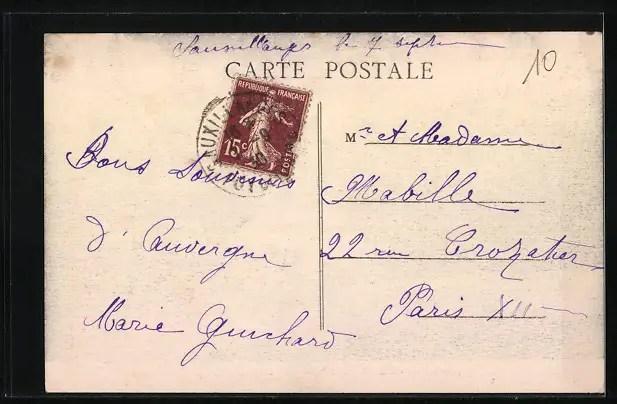 Sauxillanges le 7 septbre
10
CARTE POSTALE
REPUBLIQUE FRANÇAISE
15c
POSTES
SAUXILLANGES
Mr et Madame
Mabille
22 rue Crozatier
Paris XII
Bons Souvenirs
d'Auvergne
Marie Guichard